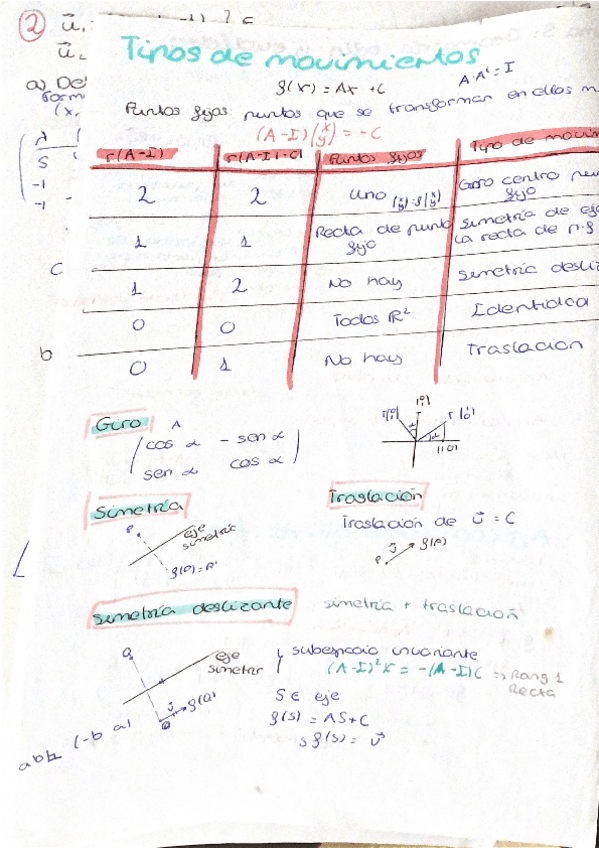 2
a) De
form
(x,
λ
S
-1
-1
c
b
Tipos de movimientos
f(x) = Ax + C
A·Aᵗ = I
Puntos fijos: puntos que se transforman en ellos m
(A-I)(x y) = -C
r(A-I) r(A-I|-C) Puntos fijos Tipo de movim
2 2 Uno (x y)=f(x y) Giro centro pun fijo
1 1 Recta de punto fijo Simetría de eje La recta de p.f
1 2 No hay Simetría desliz
0 0 Todos ℝ² Identidad
0 1 No hay Traslación
Giro A
(cos α - sen α
sen α cos α)
α
α
(1 0)
Simetría
P
eje simetría
f(P)=P'
Traslación
Traslación de v⃗ = C
P v⃗ f(P)
Simetría deslizante simetría + traslación
Q
eje simetrí
v⃗ f(Q)
subespacio invariante
(A-I)²X = -(A-I)C => Rang 1
Recta
S ∈ eje
f(S) = AS+C
Sf(S) = v⃗
(-b a)